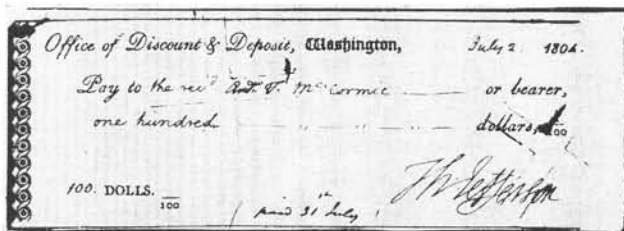 Office of Discount & Deposit, Washington, July 2 1804.
Pay to the revd And. T. McCormic or bearer,
one hundred " " " dollars, /100
100. DOLLS. /100
paid 31st July
Th Jefferson